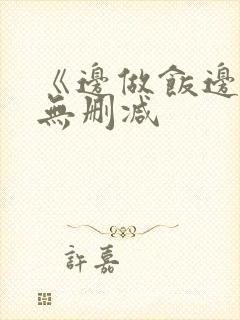 《邊做飯邊
無刪减
許嘉